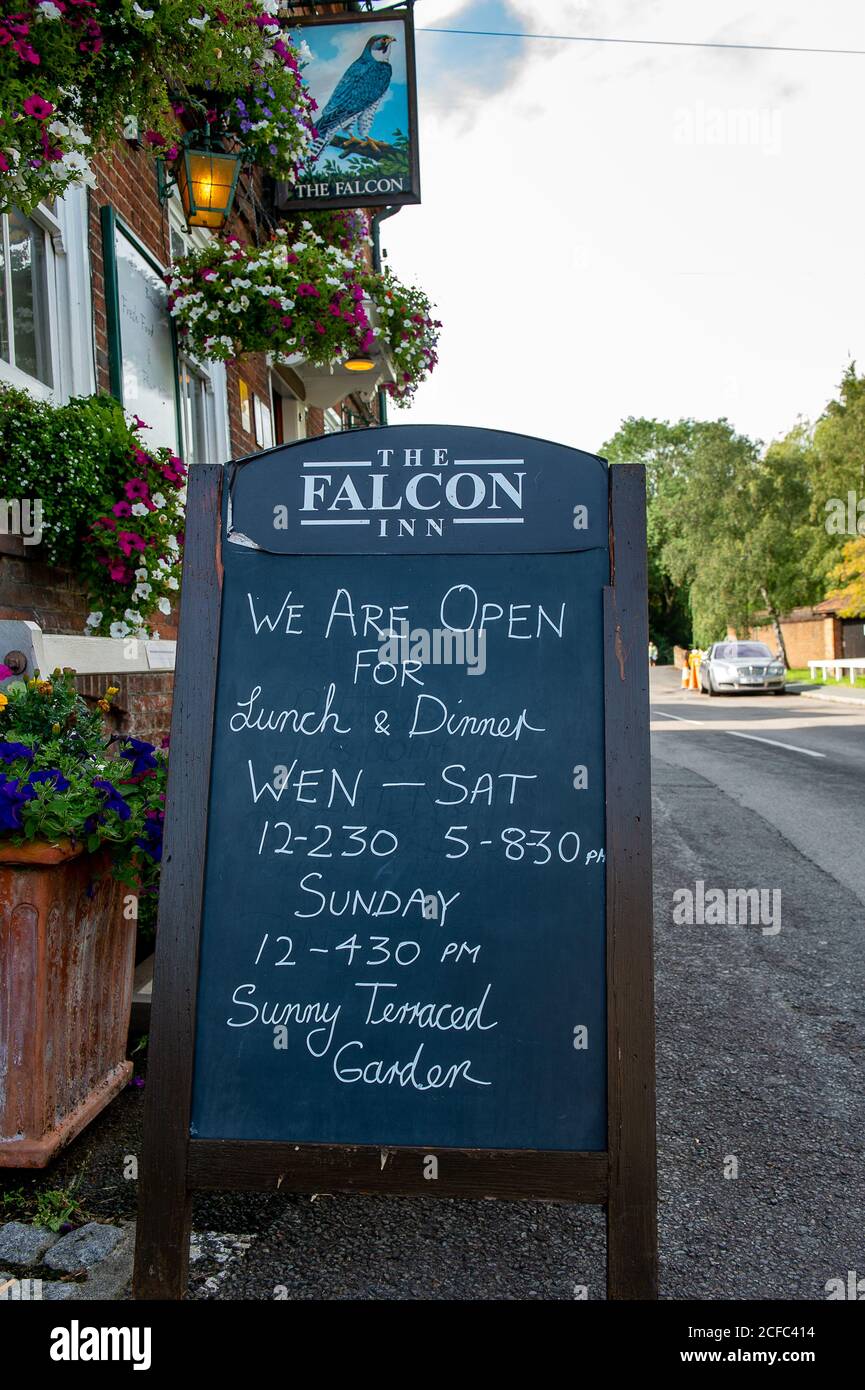 THE FALCON
Fresh Food
THE
FALCON
INN
WE ARE OPEN
FOR
Lunch & Dinner
WEN – SAT
12-230 5-830 PM
SUNDAY
12-430 PM
Sunny Terraced
Garden
alamy
Image ID: 2CFC414
www.alamy.com